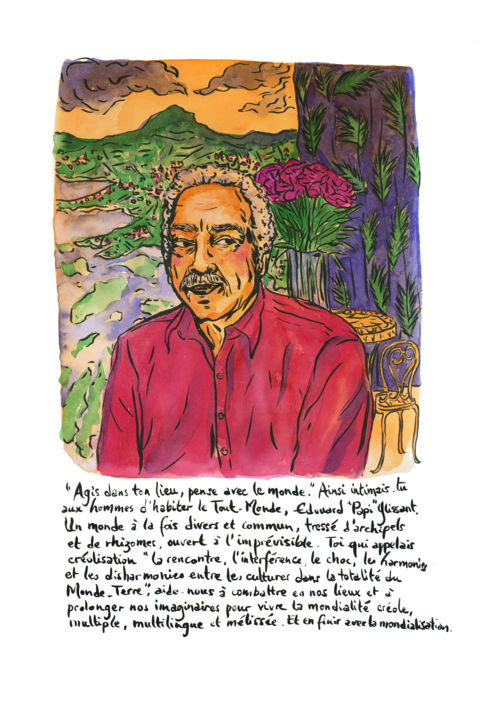 "Agis dans ton lieu, pense avec le monde." Ainsi intimais-tu
aux hommes d'habiter le Tout-Monde, Edouard "Papi" Glissant.
Un monde à la fois divers et commun, tressé d'archipels
et de rhizomes, ouvert à l'imprévisible. Toi qui appelais
créolisation "la rencontre, l'interférence, le choc, les harmonies
et les disharmonies entre les cultures dans la totalité du
Monde-Terre", aide-nous à combattre en nos lieux et à
prolonger nos imaginaires pour vivre la mondialité créole,
multiple, multilingue et mélissée. Et en finir avec la mondialisation.